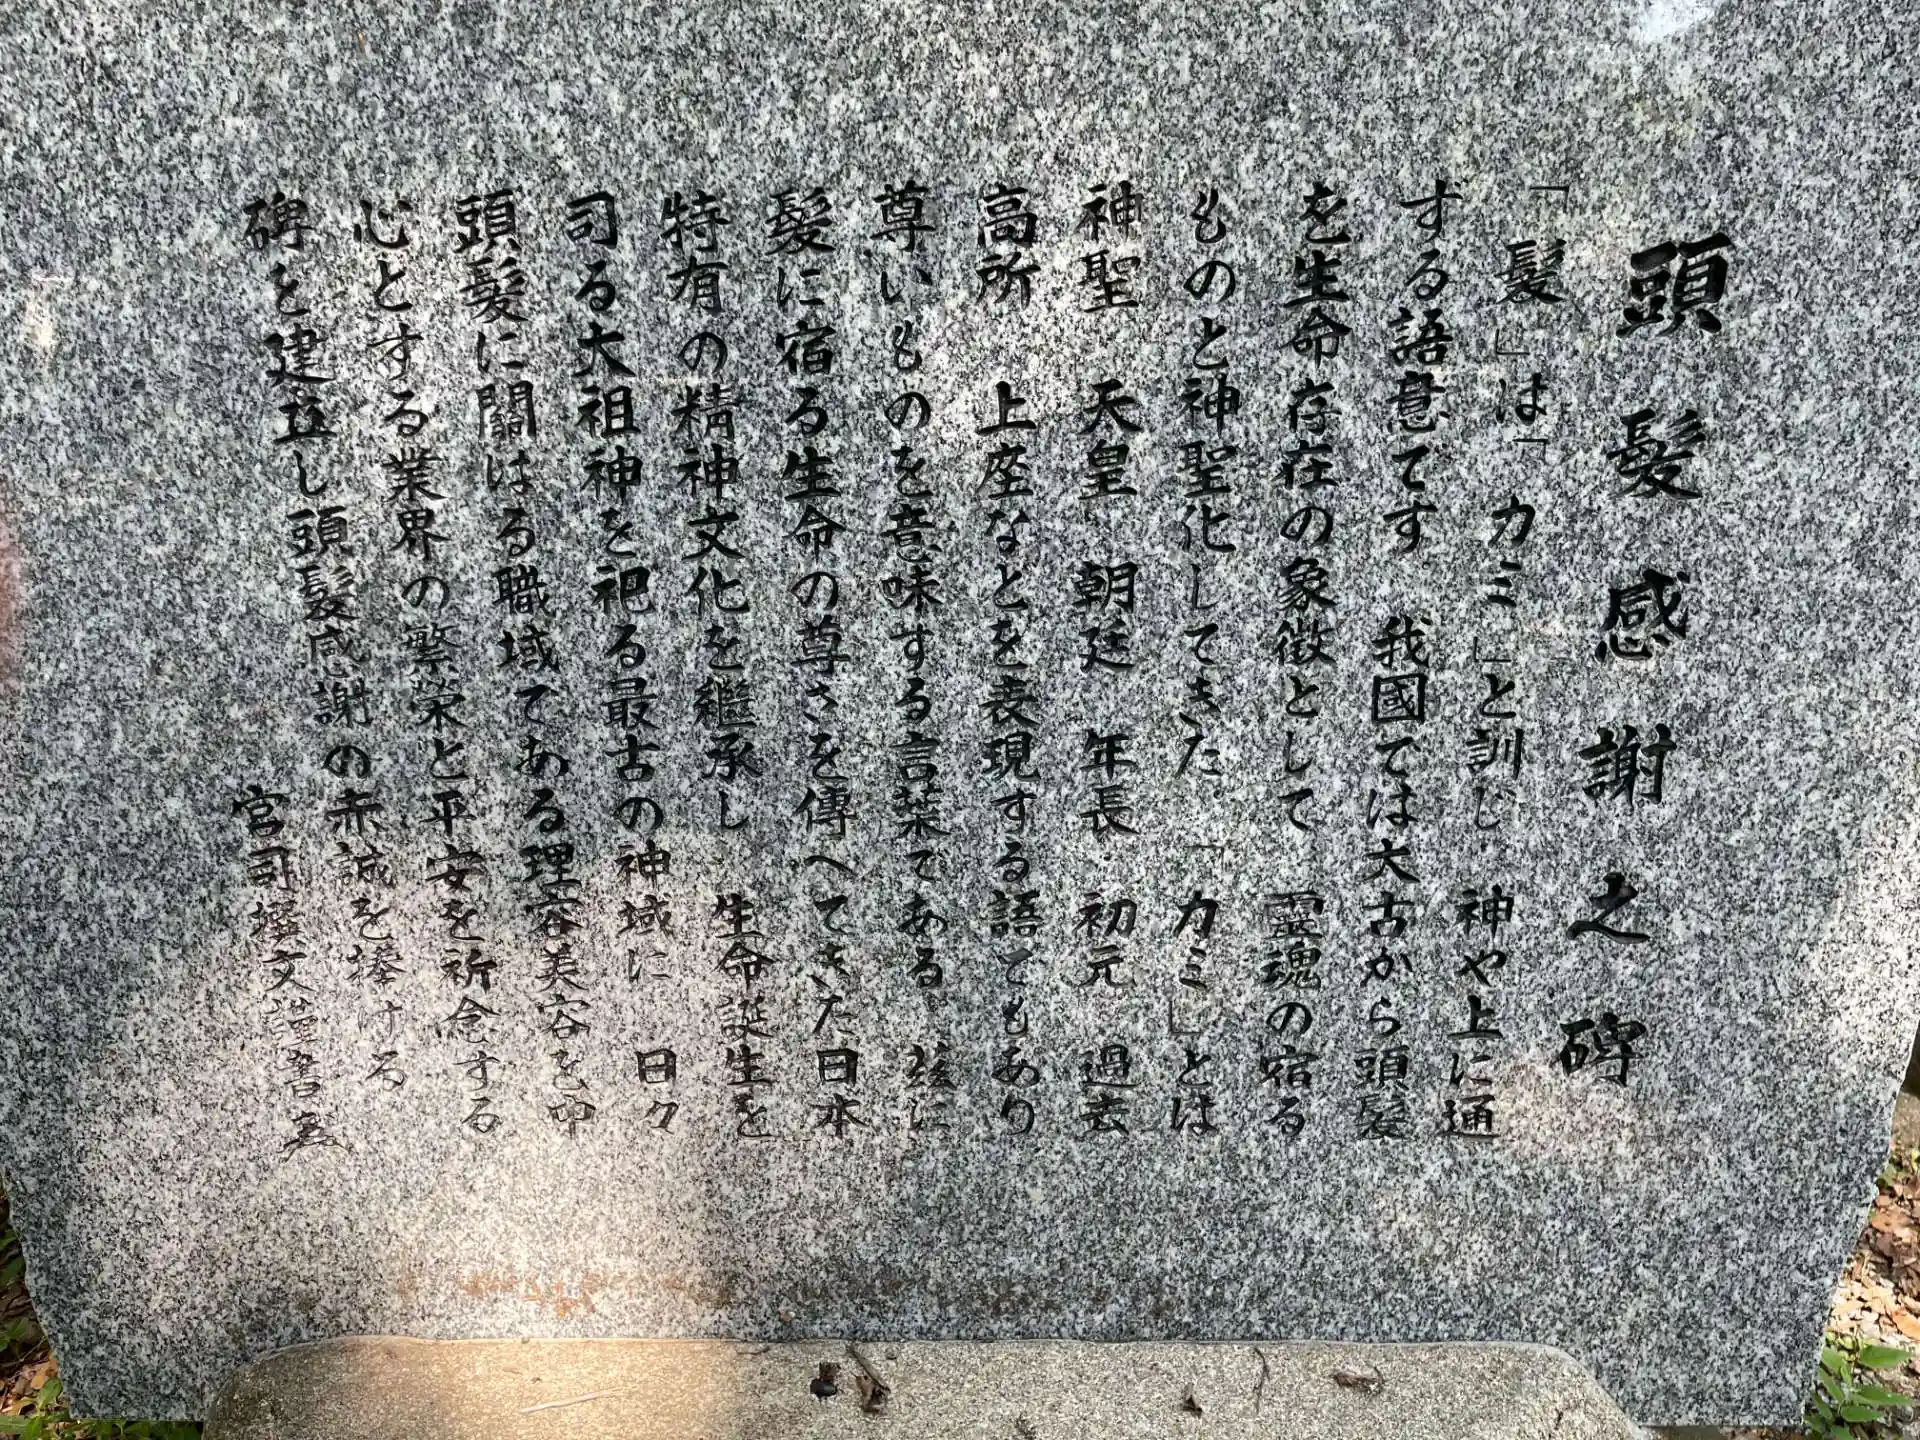 頭髪感謝之碑
「髪」は「カミ」と訓じ 神や上に通
ずる語意てす 我國ては太古から頭髪
を生命存在の象徴として 霊魂の宿る
ものと神聖化してきた。「カミ」とは
神聖 天皇 朝廷 年長 初元 過去
高所 上座なとを表現する語てもあり
尊いものを意味する言葉てある 茲に
髪に宿る生命の尊さを傳へてきた日本
特有の精神文化を継承し 生命誕生を
司る大祖神を祀る最古の神域に 日々
頭髪に關はる職域てある理容美容を中
心とする業界の繁栄と平安を祈念する
碑を建立し頭髪感謝の赤誠を捧ける
宮司 文謹書